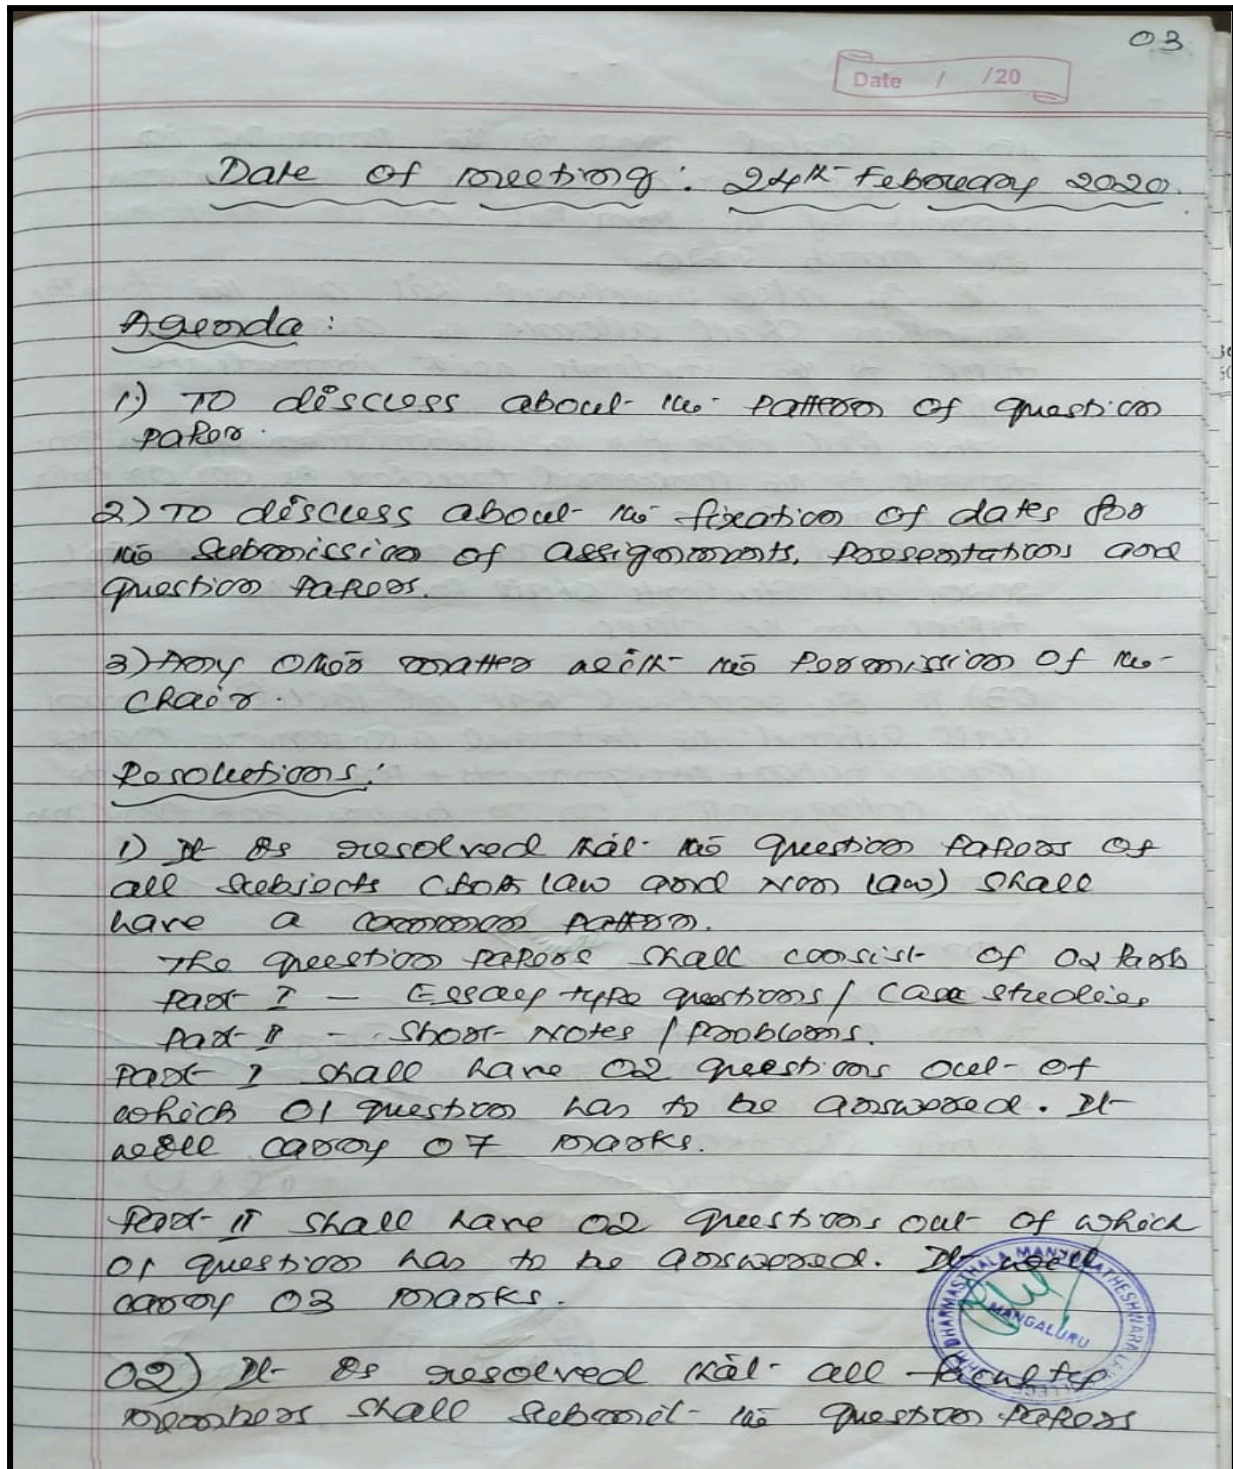 03
Date / /20
Date of meeting : 24th February 2020.
Agenda :
1) To discuss about the pattern of question
paper.
2) To discuss about the fixation of dates for
the submission of assignments, Presentations and
question papers.
3) Any other matter with the permission of the
chair.
Resolutions :
1) It is resolved that the question papers of
all subjects (both law and Non law) shall
have a common pattern.
The question papers shall consist of 02 parts
Part I - Essay type questions / Case studies
Part II - Short Notes / Problems.
Part I shall have 02 questions out of
which 01 question has to be answered. It
will carry 07 marks.
Part II shall have 02 questions out of which
01 question has to be answered. It will
carry 03 marks.
SHRI DHARMASTHALA MANJUNATHESHWARA LAW COLLEGE
MANGALURU
02) It is resolved that all faculty
members shall submit the question papers